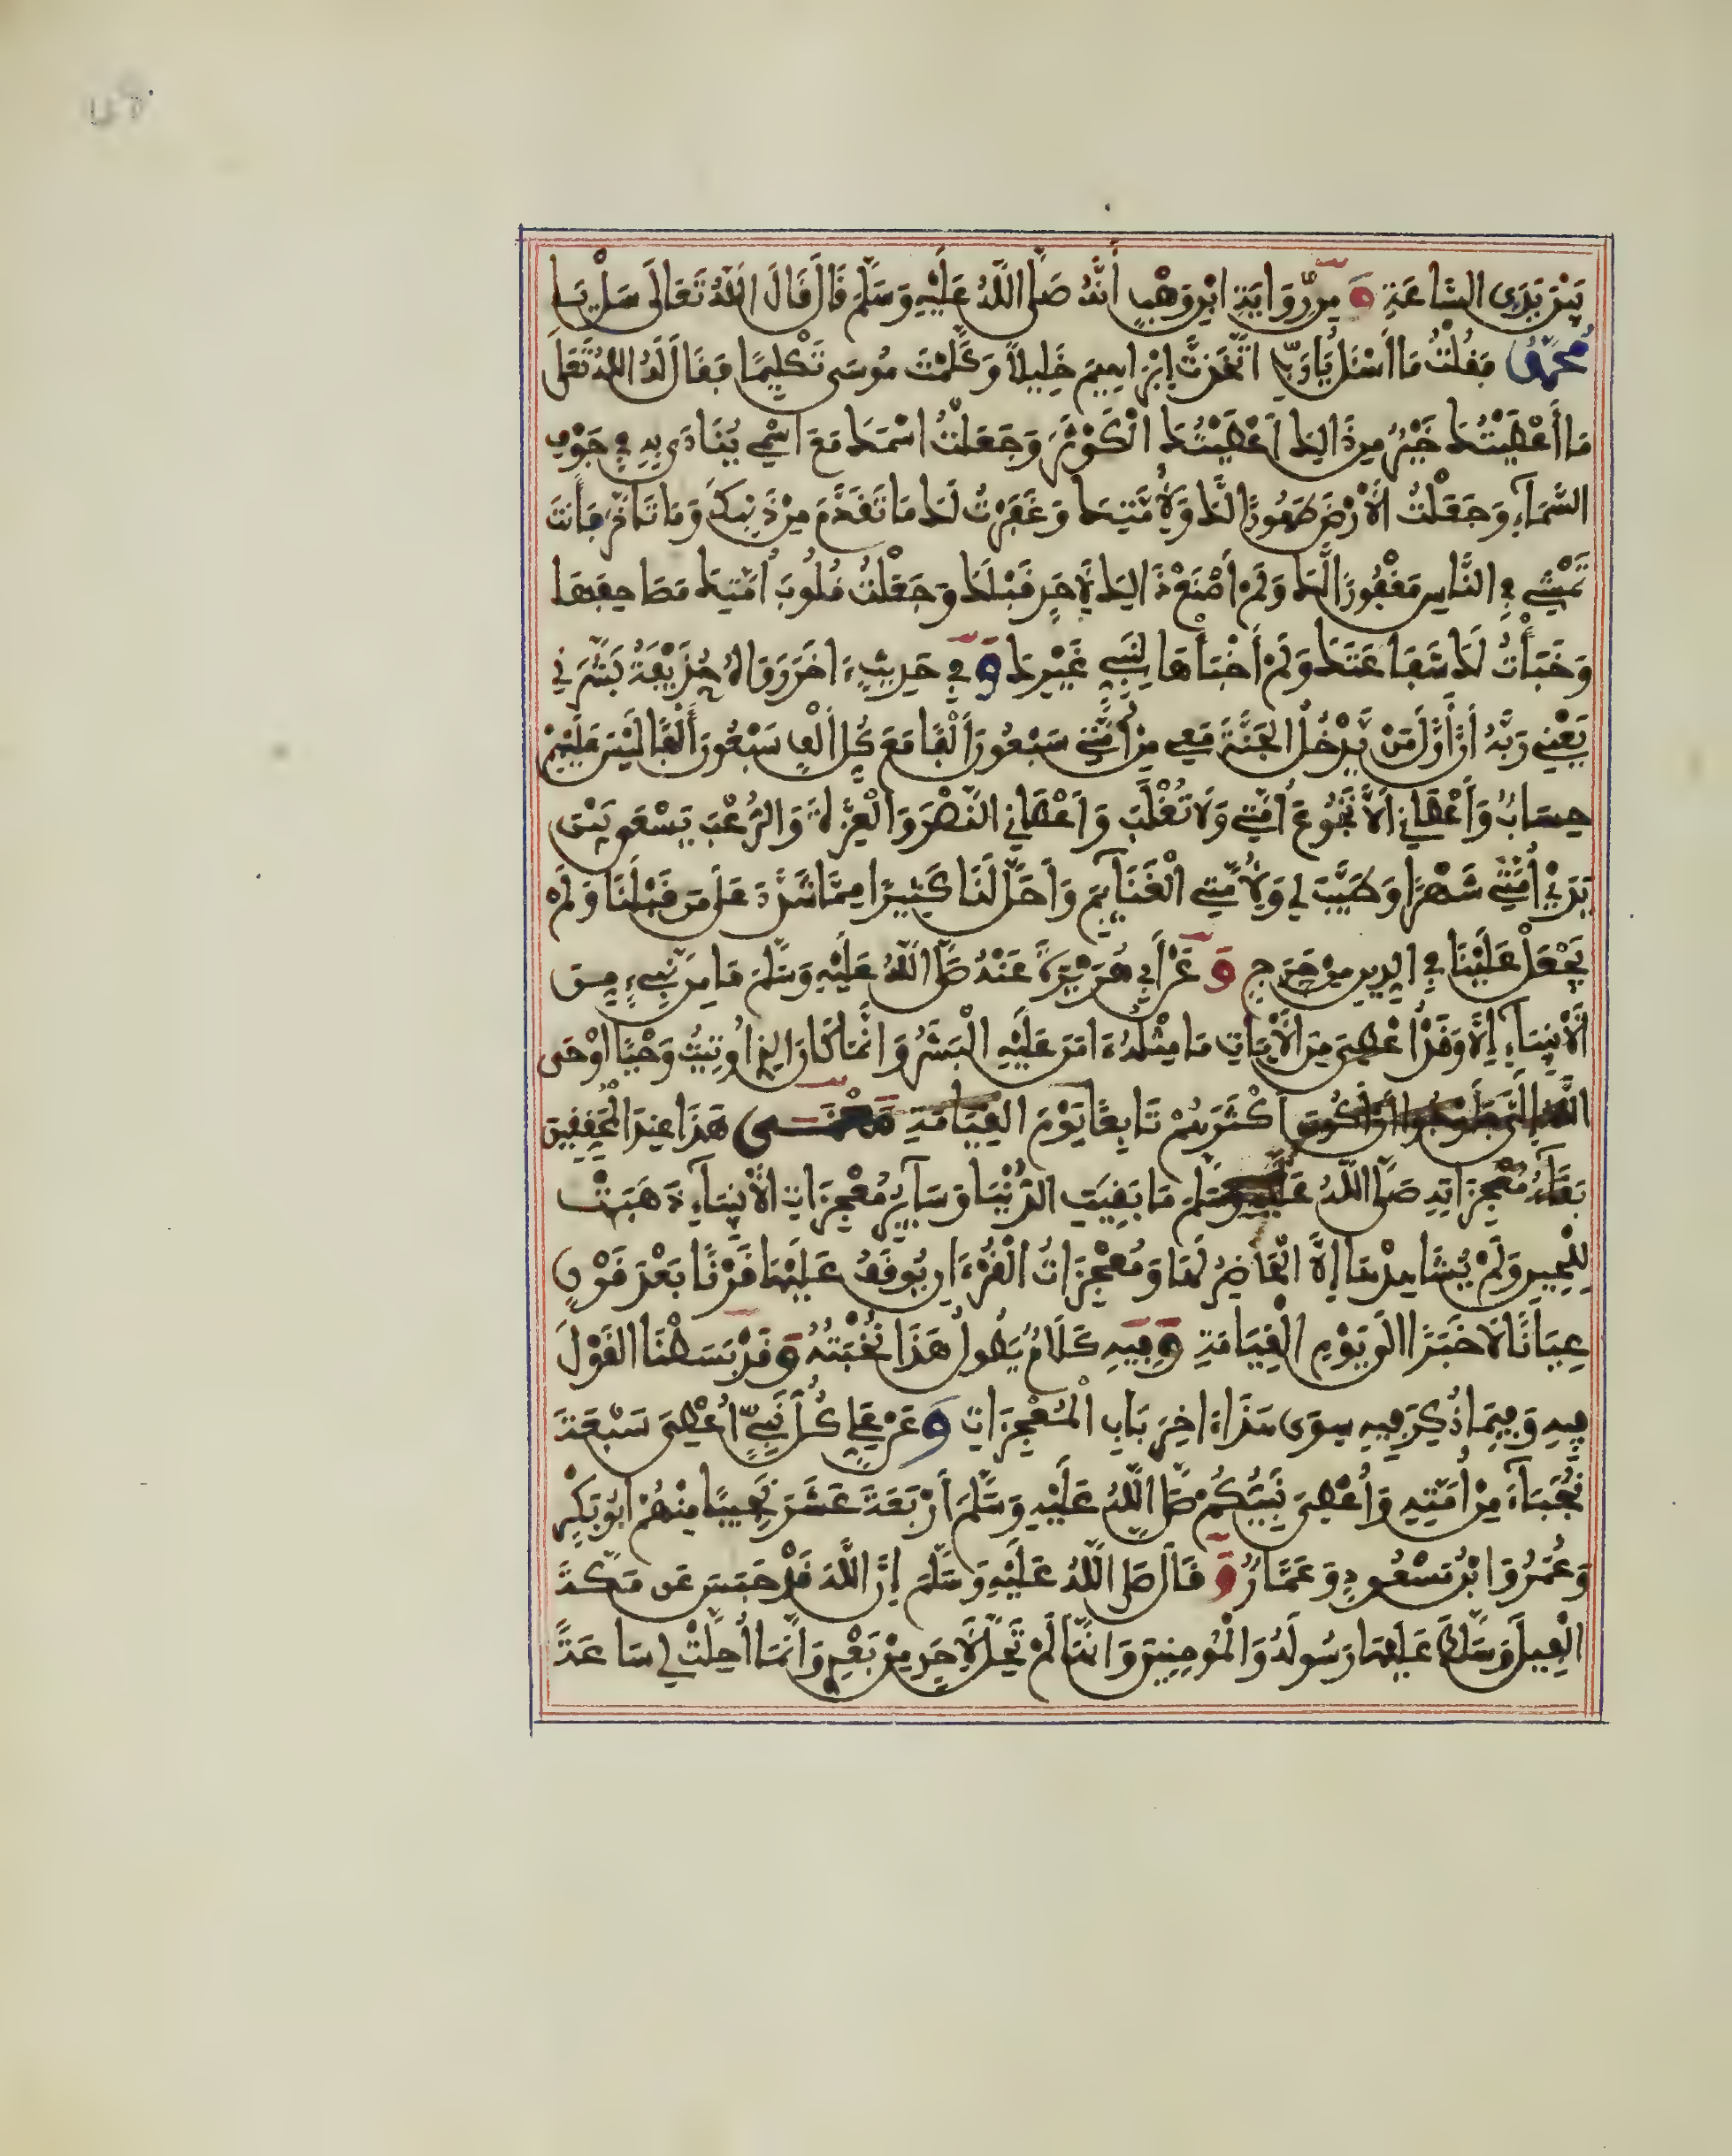 بَيْنَ يَدَيِ السَّاعَةِ وَمِن رِّوَايَةِ ابْنِ وَهْبٍ أَنَّهُ صَلَّى اللَّهُ عَلَيْهِ وَسَلَّمَ قَالَ قَالَ اللَّهُ تَعَالَى سَلْ يَا
مُحَمَّدُ فَقُلْتُ مَا أَسْئَلُ يَا رَبِّ اتَّخَذْتَ إِبْرَاهِيمَ خَلِيلًا وَكَلَّمْتَ مُوسَى تَكْلِيمًا فَقَالَ لَهُ اللَّهُ تَعَلَى
مَا أَعْطَيْتُكَ خَيْرٌ مِن ذَالِكَ أَعْطَيْتُكَ الْكَوْثَرَ وَجَعَلْتُ اسْمَكَ مَعَ اسْمِي يُنَادَى بِهِ فِي جَوْفِ
السَّمَاءِ وَجَعَلْتُ الْأَرْضَ طَهُورًا لَّكَ وَلِأُمَّتِكَ وَغَفَرْتُ لَكَ مَا تَقَدَّمَ مِنْ ذَنبِكَ وَمَا تَأَخَّرَ فَأَنتَ
تَمْشِي فِي النَّاسِ مَغْفُورًا لَّكَ وَلَمْ أَصْنَعْ ذَالِكَ لِأَحَدٍ قَبْلَكَ وَجَعَلْتُ قُلُوبَ أُمَّتِكَ مَصَاحِفَهَا
وَخَبَأْتُ لَكَ شَفَاعَتَكَ وَلَمْ أَخْبَأْهَا لِنَبِيٍّ غَيْرِكَ وَفِي حَدِيثٍ ءَاخَرَ رَوَاهُ حُذَيْفَةُ بَشَّرَنِي
يَعْنِي رَبَّهُ أَنَّ أَوَّلَ مَنْ يَّدْخُلُ الْجَنَّةَ مَعِي مِنْ أُمَّتِي سَبْعُونَ أَلْفًا مَعَ كُلِّ أَلْفٍ سَبْعُونَ أَلْفًا لَيْسَ عَلَيْهِمْ
حِسَابٌ وَأَعْطَانِي أَلَّا تَجُوعَ أُمَّتِي وَلَا تُغْلَبَ وَأَعْطَانِي النَّصْرَ وَالْعِزَّةَ وَالرُّعْبَ يَسْعَى بَيْنَ
يَدَيْ أُمَّتِي شَهْرًا وَطَيَّبَ لِي وَلِأُمَّتِي الْغَنَايِمَ وَأَحَلَّ لَنَا كَثِيرًا مِمَّا شَدَّدَ عَلَى مَن قَبْلَنَا وَلَمْ
يَجْعَلْ عَلَيْنَا فِي الدِّينِ مِنْ حَرَجٍ وَعَنْ أَبِي هُرَيْرَةَ عَنْهُ صَلَّى اللَّهُ عَلَيْهِ وَسَلَّمَ مَا مِن نَّبِيءٍ مِنَ
الْأَنبِيَاءِ إِلَّا وَقَدْ أُعْطِيَ مِنَ الْآيَاتِ مَا مِثْلُهُ ءَامَنَ عَلَيْهِ الْبَشَرُ وَإِنَّمَا كَانَ الَّذِي أُوتِيتُ وَحْيًا أَوْحَى
اللَّهُ إِلَيَّ فَأَرْجُوا أَنْ أَكُونَ أَكْثَرَهُمْ تَابِعًا يَوْمَ الْقِيَامَةِ مَعْنَى هَذَا عِنْدَ الْمُحَقِّقِينَ
بَقَاءُ مُعْجِزَاتِهِ صَلَّى اللَّهُ عَلَيْهِ وَسَلَّمَ مَا بَقِيَتِ الدُّنْيَا وَسَايِرُ مُعْجِزَاتِ الْأَنبِيَاءِ ذَهَبَتْ
لِلْحِينِ وَلَمْ يُشَاهِدْهَا إِلَّا الْحَاضِرُ لَهَا وَمُعْجِزَاتُ الْقُرْءَانِ يُوقَفُ عَلَيْهَا قَرْنًا بَعْدَ قَرْنٍ
عِيَانًا لَا خَبَرًا إِلَى يَوْمِ الْقِيَامَةِ وَفِيهِ كَلَامٌ يَطُولُ هَذَا نُخْبَتُهُ وَقَدْ بَسَطْنَا الْقَوْلَ
فِيهِ وَفِيمَا ذُكِرَ فِيهِ سِوَى هَذَا ءَاخِرَ بَابِ الْمُعْجِزَاتِ وَعَنْ عَلِيٍّ كُلُّ نَبِيٍّ أُعْطِيَ سَبْعَةَ
نُجَبَاءَ مِنْ أُمَّتِهِ وَأُعْطِيَ نَبِيُّكُمْ صَلَّى اللَّهُ عَلَيْهِ وَسَلَّمَ أَرْبَعَةَ عَشَرَ نَجِيبًا مِنْهُمْ أَبُو بَكْرٍ
وَعُمَرُ وَابْنُ مَسْعُودٍ وَعَمَّارٌ وَقَالَ صَلَّى اللَّهُ عَلَيْهِ وَسَلَّمَ إِنَّ اللَّهَ قَدْ حَبَسَ عَن مَكَّةَ
الْفِيلَ وَسَلَّطَ عَلَيْهَا رَسُولَهُ وَالْمُومِنِينَ وَإِنَّهَا لَمْ تَحِلَّ لِأَحَدٍ مِنْ بَعْدِي وَإِنَّمَا أُحِلَّتْ لِي سَاعَةً